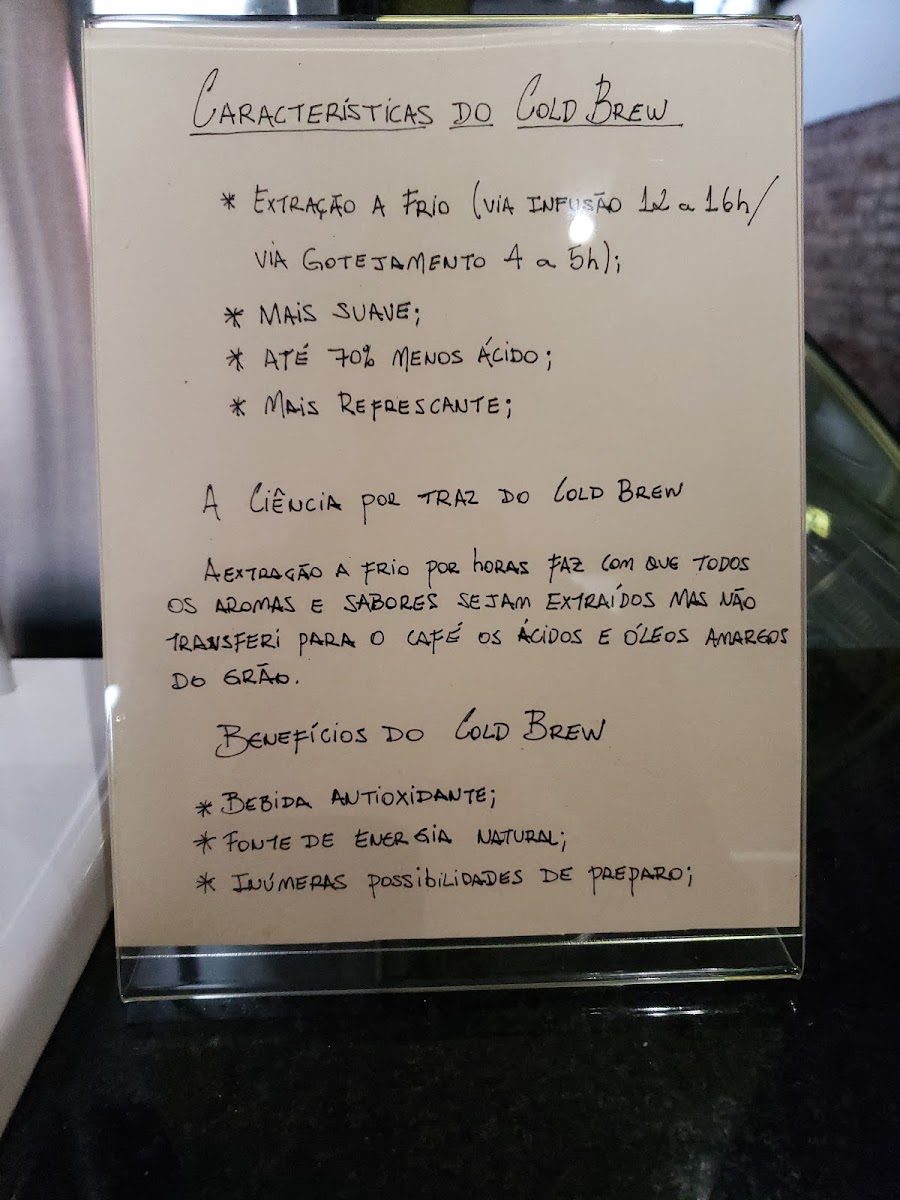 Características do Cold Brew
* Extração a Frio (via infusão 12 a 16h/
via Gotejamento 4 a 5h);
* Mais suave;
* Até 70% menos ácido;
* Mais Refrescante;
A Ciência por traz do Cold Brew
A extração a frio por horas faz com que todos
os aromas e sabores sejam extraídos mas não
transferi para o café os ácidos e óleos amargos
do grão.
Benefícios do Cold Brew
* Bebida antioxidante;
* Fonte de energia natural;
* Inúmeras possibilidades de preparo;